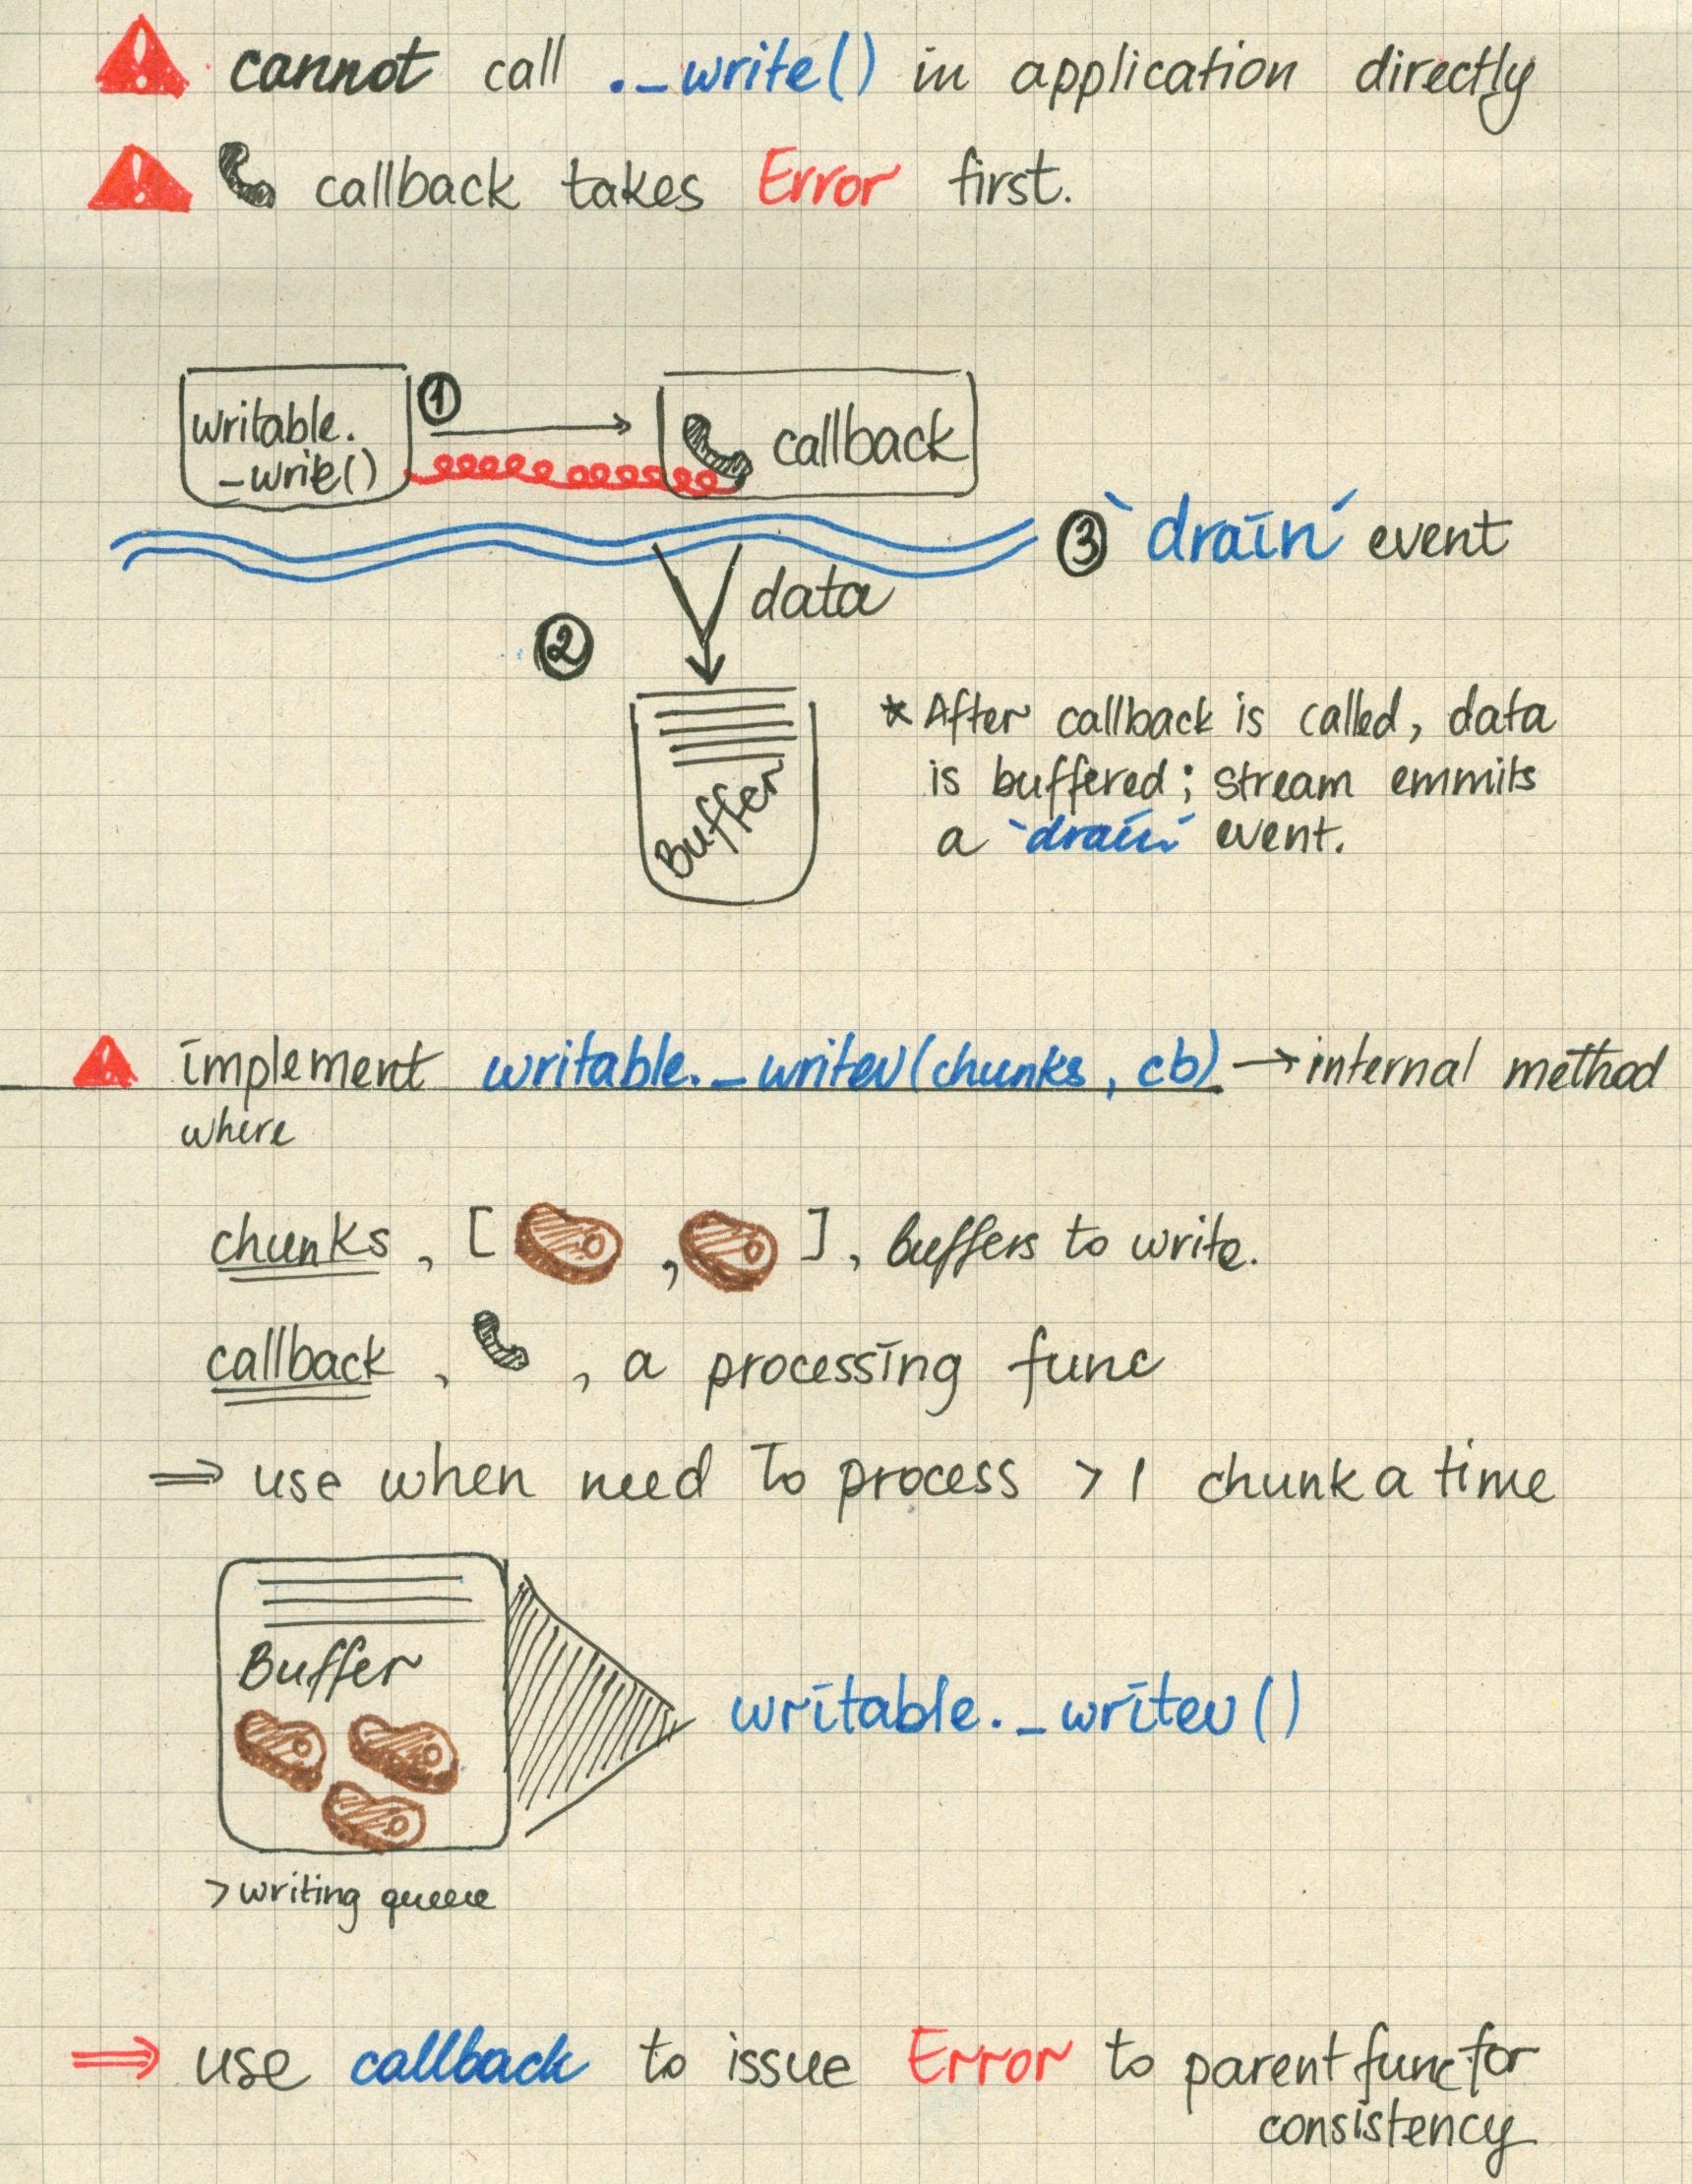 ! cannot call ._write() in application directly
! callback takes Error first.
writable.
_write()
①
callback
③ `drain´ event
data
②
Buffer
* After callback is called, data
is buffered; stream emmits
a `drain´ event.
! implement writable._writev(chunks, cb) → internal method
where
chunks, [ , ], buffers to write.
callback, , a processing func
⇒ use when need to process > 1 chunk a time
Buffer
writable._writev()
> writing queue
⇒ use callback to issue Error to parent func for
consistency